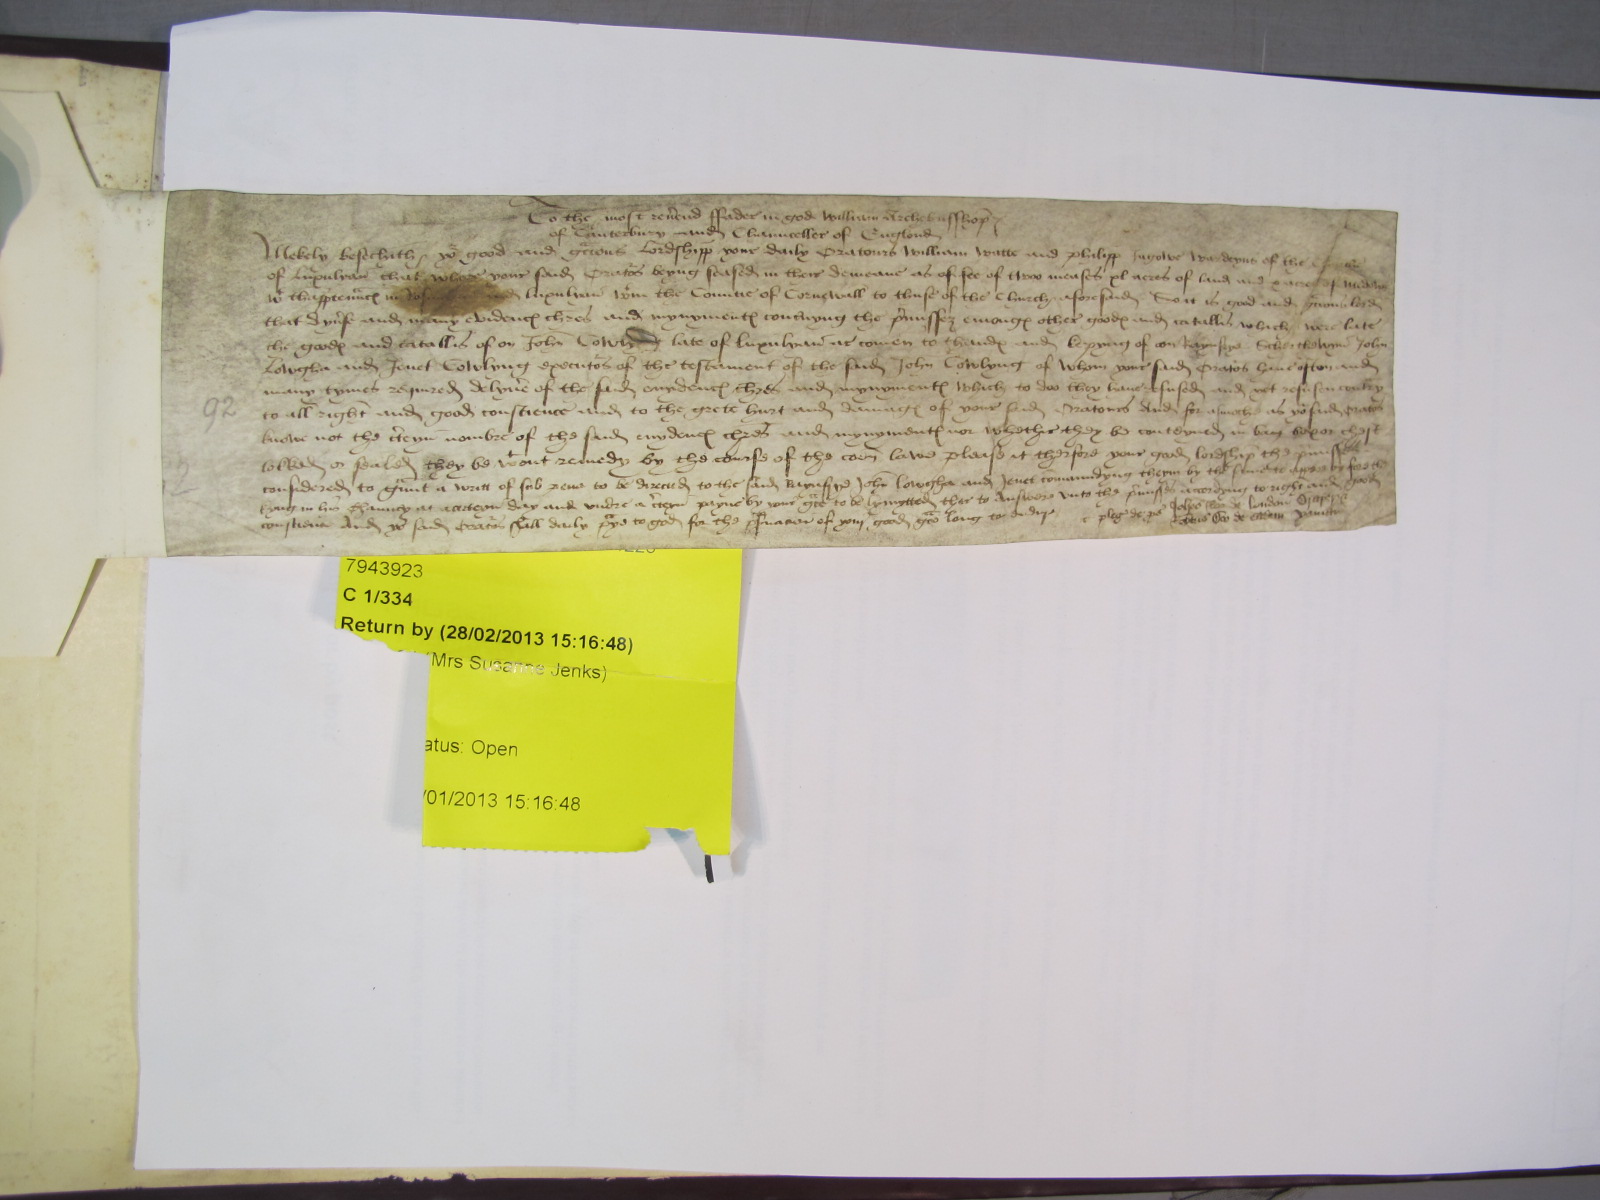 To the most reu'end ffader in god William Archebusshop
of Caunterbury and Chaunceller of Englond
Mekely besechith yor good and gracious lordshipp your daily Oratours William Watte and Philipp Wardeyns of the
of luxulyan that where your said Oratos beyng seased in their demeane as of fee of two meases xl acres of land and acre of
wt thapptennce in and luxulyan wtin the Countie of Cornewall to thuse of the Church aforesaid So it is good and lord
that dyu'se and many evidence chres and mynymente concnyng the p'missez emonge other goode and catallis which were late
the goode and catallis of on John Cowlyng late of luxulyan ar comen to thande and kepyng of on John
Lowgha and Jenet Cowlyng executos of the testament of the said John Cowlyng of whom your said Oratos haue often and
many tymes required delyue of the said evydence chres and mynymente which to doo they haue refused and yet refusen contry
to all right and good conscience and to the grete hurt and damage of your said Oratours And for asmoche as yor said Orators
knowe not the c'teyn nombre of the said evydence chres and mynymente nor whether they be conteyned in bag box or chest
lokked or sealed they be wtout remedy by the course of the coen lawe please it therfore your good lordship the p'missez
considered to g'unt a writt of sub pena to be directed to the said John Lowgha and Jenet comaundyng theym by the same to appere byfore the
kyng in his Chauncy at a certeyn day and vndre a c'teyn payne by your g'ce to be lymytted ther to answere vnto the p'misses accordyng to right and good
conscience And yor said Orators shall daily p'ye to god for the p's'uacion of your good g'ce long to endure
pleg de ps
de london
de eadem
92
2
7943923
C 1/334
Return by (28/02/2013 15:16:48)
(Mrs Susanne Jenks)
atus: Open
/01/2013 15:16:48